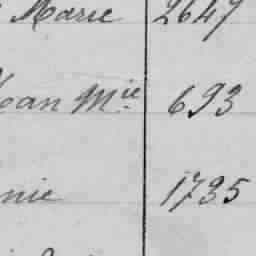 Marie 2647
Jean Mie 693
nie 1735